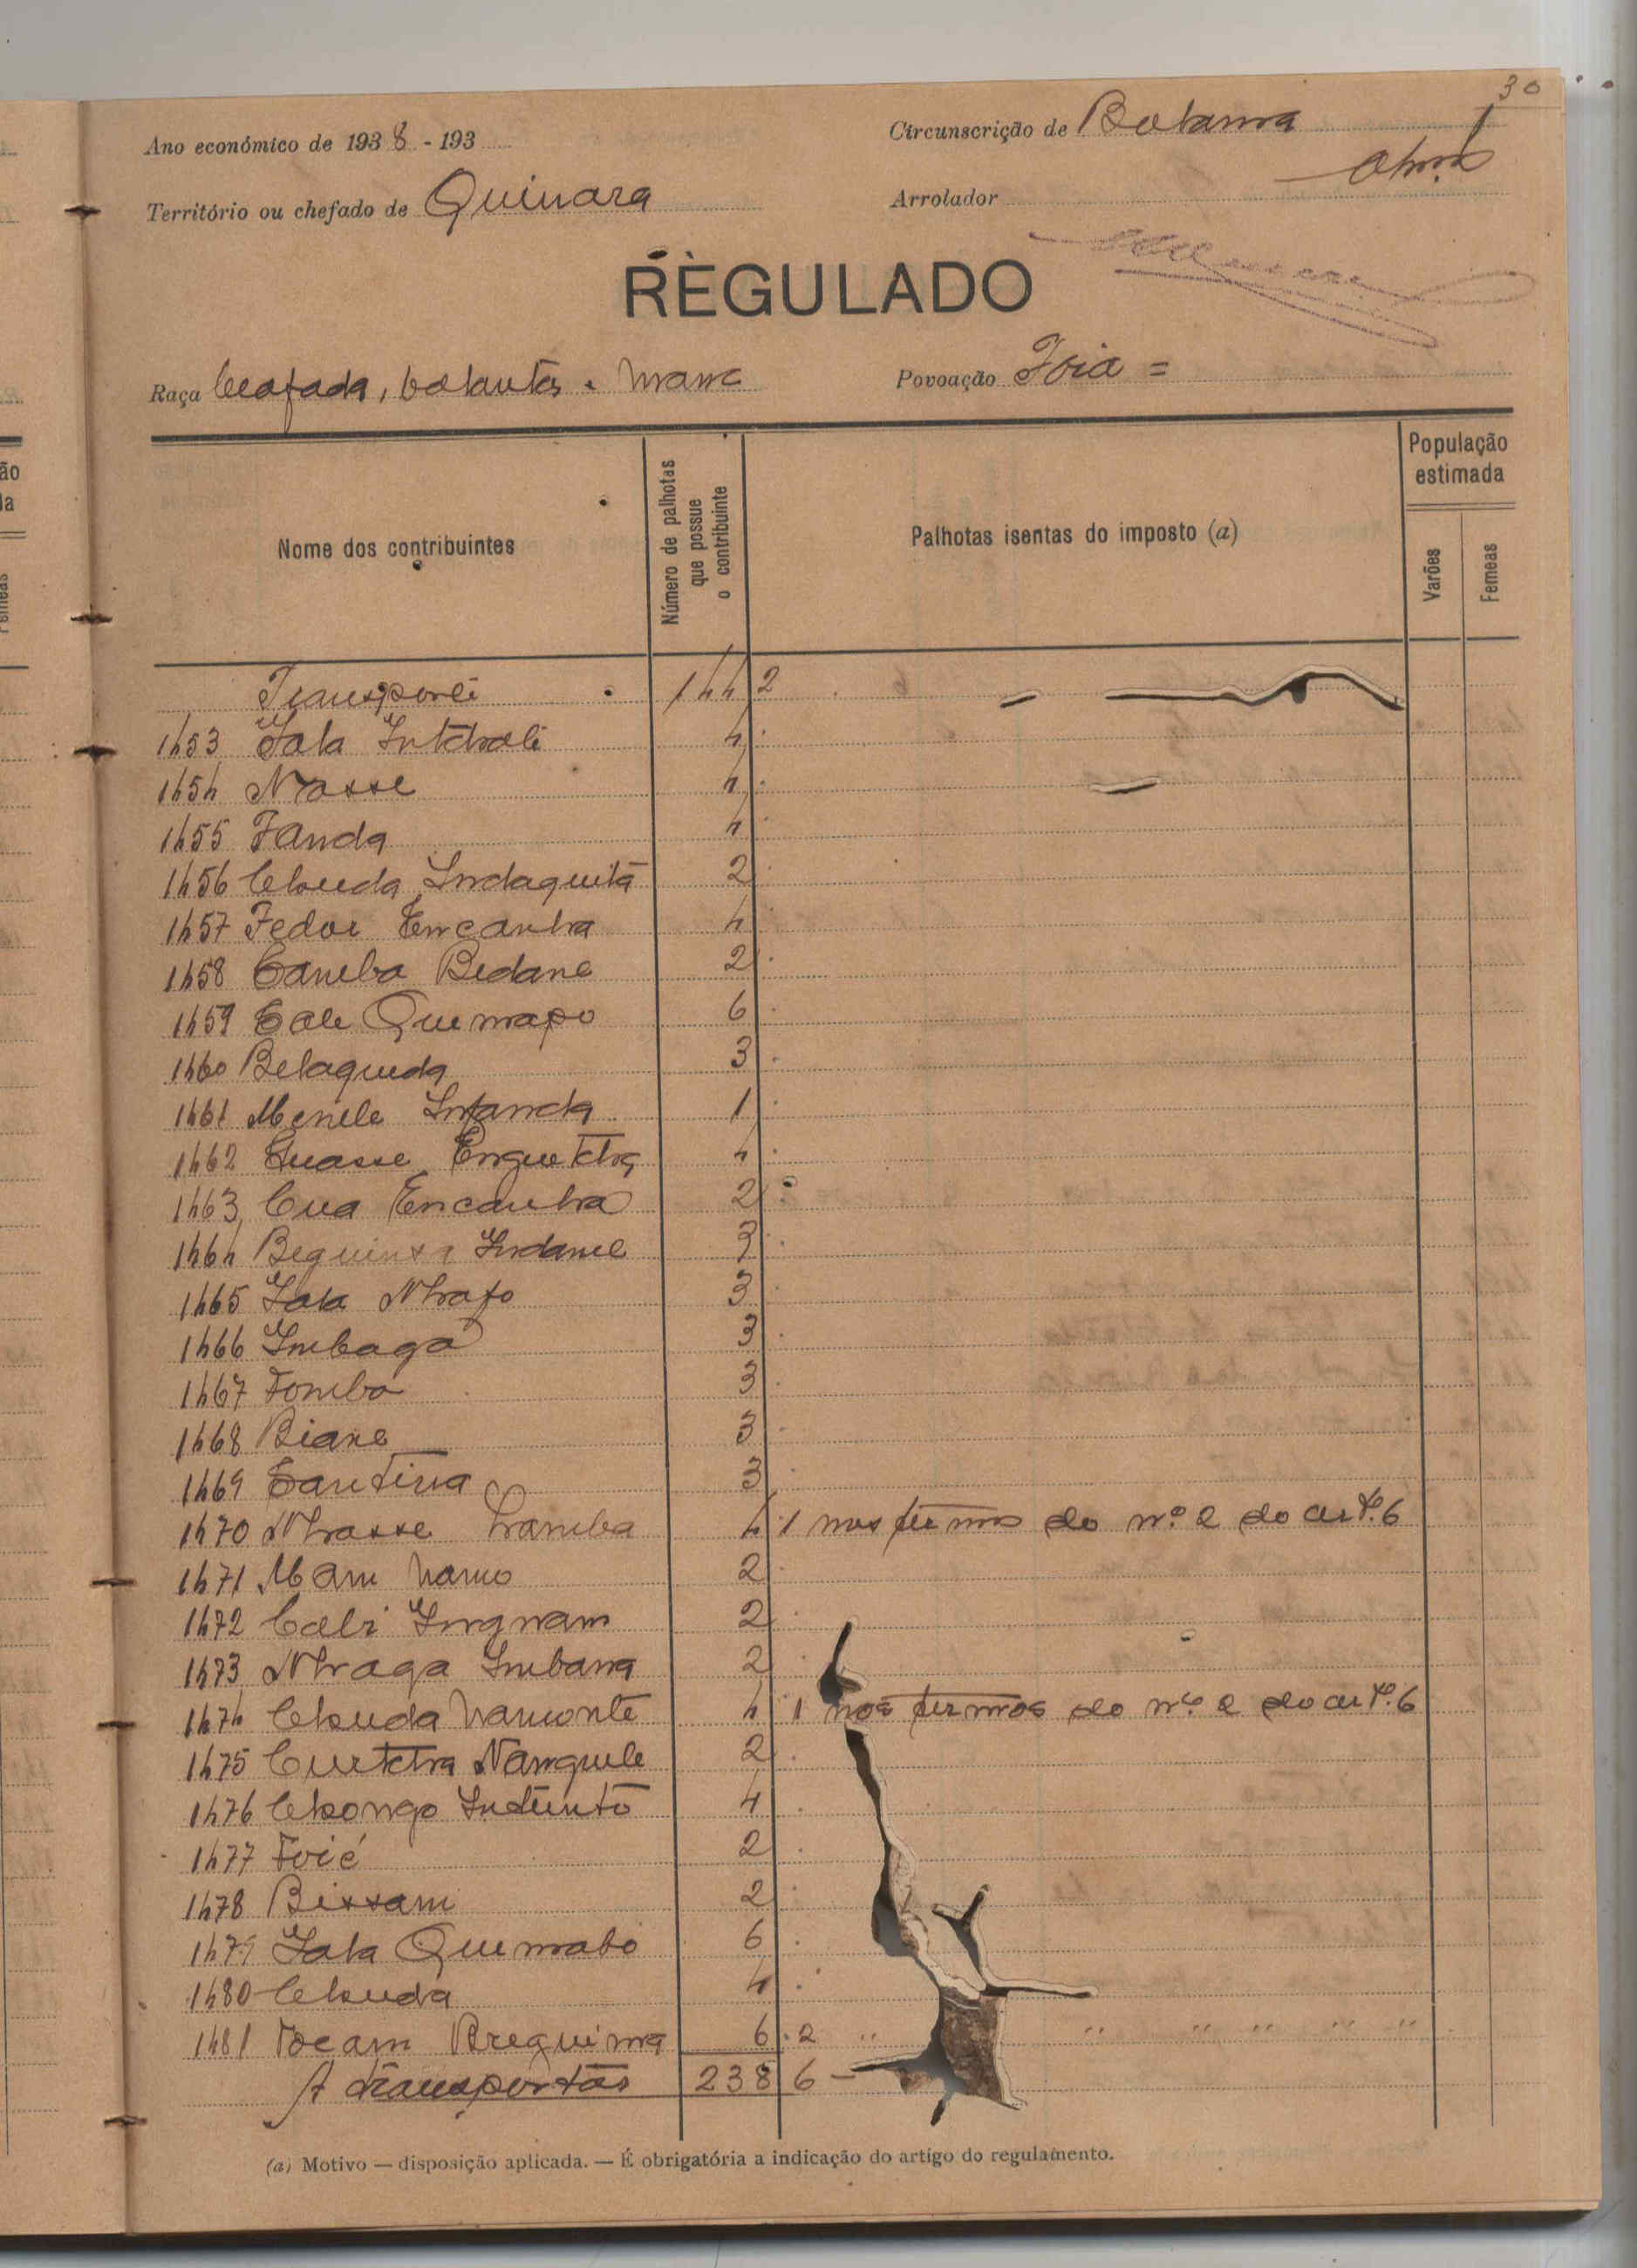 30
Ano económico de 1938 - 193
Circunscrição de Bolama
Território ou chefado de Quinara
Arrolador
REGULADO
Raça Beafada, balantas, mam
Povoação Foia =
População estimada
Nome dos contribuintes
Número de palhotas que possue o contribuinte
Palhotas isentas do imposto (a)
Varões
Femeas
Transporte 144 2
1453 Iala Intchale 4
1454 N'asse 4
1455 Fanda 4
1456 Chuda Indaquitá 2
1457 Fedor Encanha 4
1458 Camba Bedane 2
1459 Cale Quemapo 6
1460 Belaqueda 3
1461 Menele Infanda 1
1462 Quasse Enquetcha 4
1463 Cua Encanha 2
1464 Beguinsa Indamé 3
1465 Iala N'hafo 3
1466 Imbaga 3
1467 Fomba 3
1468 Biane 3
1469 Cantina 3
1470 N'hasse hamba 4 1 nos termos do nº 2 do artº. 6
1471 Mam hamo 2
1472 Cabi Ingnam 2
1473 N'haga Imbana 2
1474 Chuda hamonte 4 1 nos termos do nº. 2 do artº. 6
1475 Cutcha Nanquele 2
1476 Chongo Indunto 4
1477 Foié 2
1478 Bissam 2
1479 Iala Quemabó 6
1480 Chuda 4
1481 Tocam Brequima 6 2 " " " " " "
A transportar 238 6 —
(a) Motivo — disposição aplicada. — É obrigatória a indicação do artigo do regulamento.